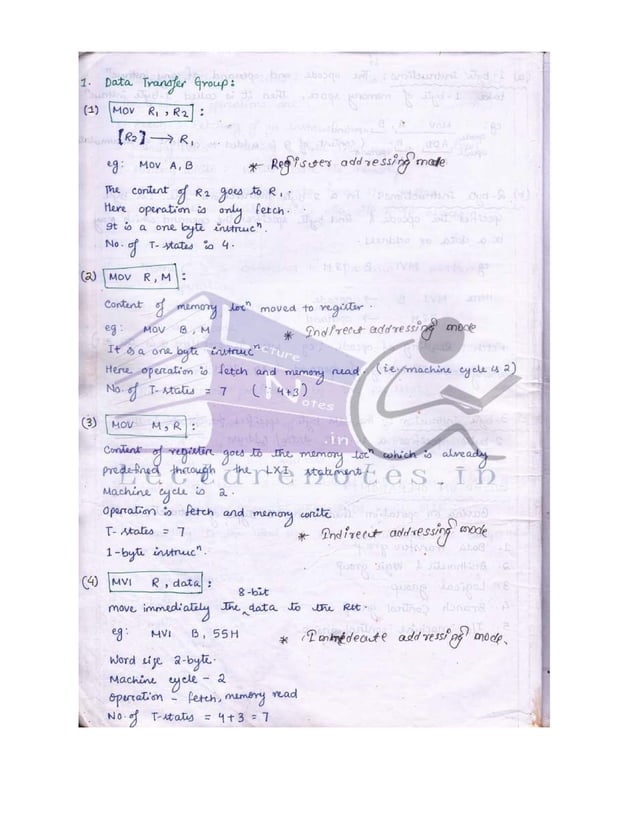 1. Data Transfer Group:
(1) MOV R1, R2 :
[R2] → R1
eg: MOV A, B * Register addressing mode
The content of R2 goes to R1.
Here operation is only fetch.
It is a one byte instrucⁿ.
No. of T-states is 4.
(2) MOV R, M :
Content of memory locⁿ moved to register.
eg: MOV B, M * Indirect addressing mode
It is a one byte instrucⁿ.
Here operation is fetch and memory read. (i.e. machine cycle is 2)
No. of T-states = 7 (∵ 4+3)
(3) MOV M, R :
Content of register goes to the memory locⁿ which is already
predefined through the LXI statement.
Machine cycle is 2.
Operation is fetch and memory write
T-states = 7 * Indirect addressing mode
1-byte instrucⁿ.
(4) MVI R, data :
8-bit
move immediately the data to the
eg: MVI B, 55H * addressing mode.
Word size 2-byte.
Machine cycle - 2
Operation - fetch, memory read
No. of T-states = 4+3 = 7
Lecture
Notes
.in
Lecturenotes.in